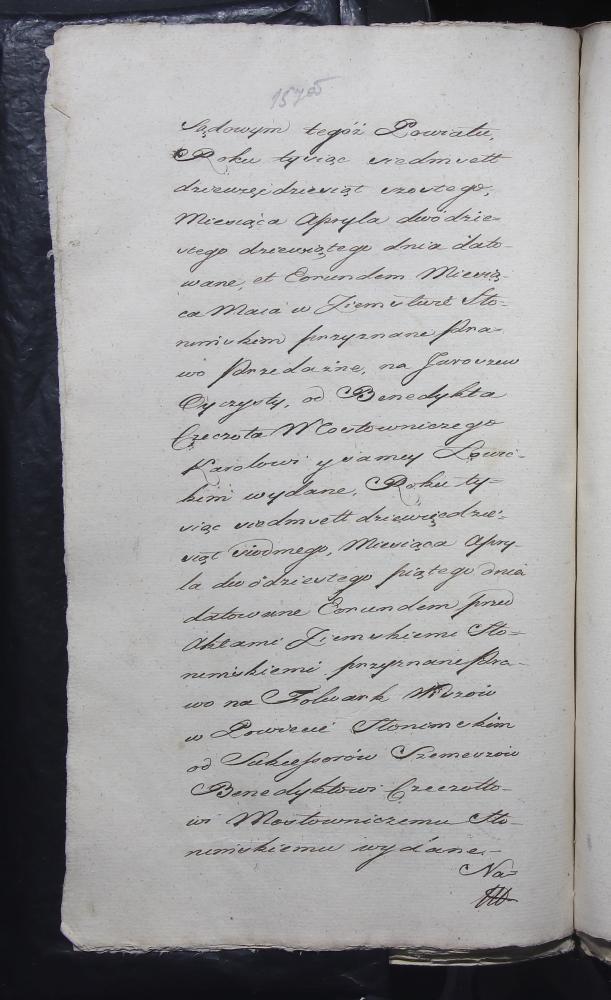 Sądowym tegóż Powiatu,
Roku tysiąc siedmsett
dziewięćdziesiąt szostego,
Miesiąca Apryla dwódzie-
stego dziewiątego dnia dato-
wane, et Eorundem Miesią-
ca Maia w Ziemstwie Sło-
nimskim przyznane Pra-
wo Przedażne, na Jaroszew
Oyczysty, od Benedykta
Czeczota Mostowniczego
Karolowi y samey
kim wydane, Roku ty-
siąc siedmsett dziewięćdzie-
siąt siodmego, Miesiąca Apry-
la dwódziestego piątego dnia
datowane Eorundem przed
Aktami Ziemskiemi Sło-
nimskiemi przyznane Pra-
wo na Folwark
w Powiecie Słonimskim
od Sukcessorów Szemeszów
Benedyktowi Czeczotto-
wi Mostowniczemu Sło-
nimskiemu wydane.-
Na=